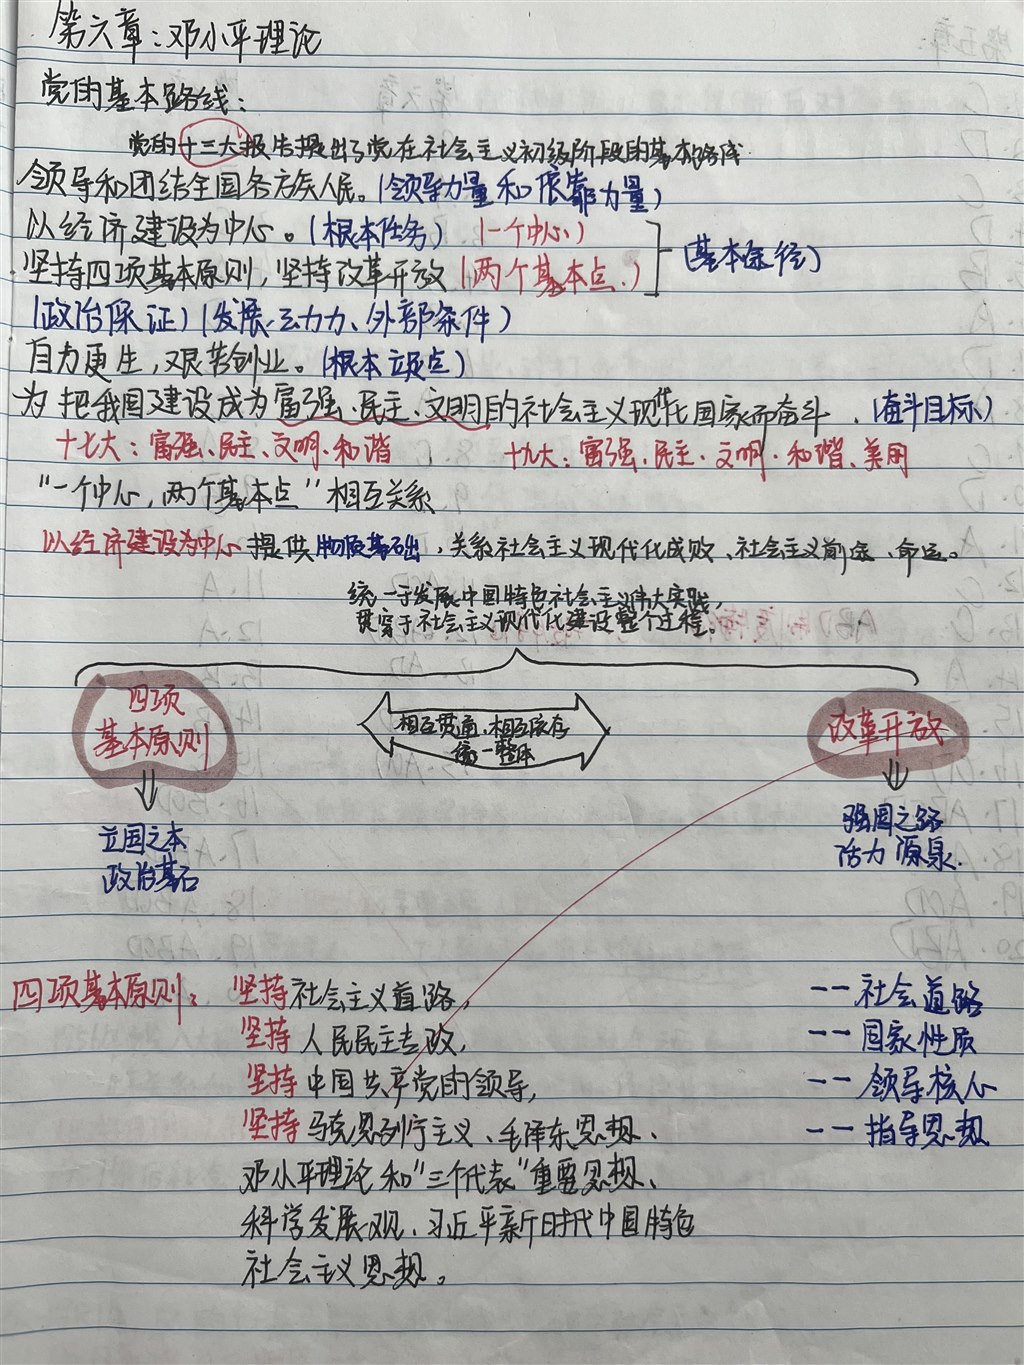 第六章：邓小平理论
党的基本路线：
党的十三大报告提出了党在社会主义初级阶段的基本路线
领导和团结全国各方族人民。(领导力量和依靠力量)
以经济建设为中心。(根本任务) (一个中心)
坚持四项基本原则，坚持改革开放 (两个基本点) (基本途径)
(政治保证) (发展动力、外部条件)
自力更生，艰苦创业。(根本立足点)
为把我国建设成为富强、民主、文明的社会主义现代化国家而奋斗．(奋斗目标)
十七大：富强、民主、文明、和谐 十九大：富强、民主、文明、和谐、美丽
“一个中心，两个基本点”相互关系
以经济建设为中心提供物质基础，关系社会主义现代化成败、社会主义前途、命运。
统一于发展中国特色社会主义伟大实践，
贯穿于社会主义现代化建设整个过程。
四项
基本原则
相互贯通、相互依存
统一整体
改革开放
立国之本
政治基石
强国之路
活力源泉．
四项基本原则：坚持社会主义道路， －－社会道路
坚持人民民主专政， －－国家性质
坚持中国共产党的领导， －－领导核心
坚持马克思列宁主义、毛泽东思想、 －－指导思想
邓小平理论和“三个代表”重要思想、
科学发展观、习近平新时代中国特色
社会主义思想。